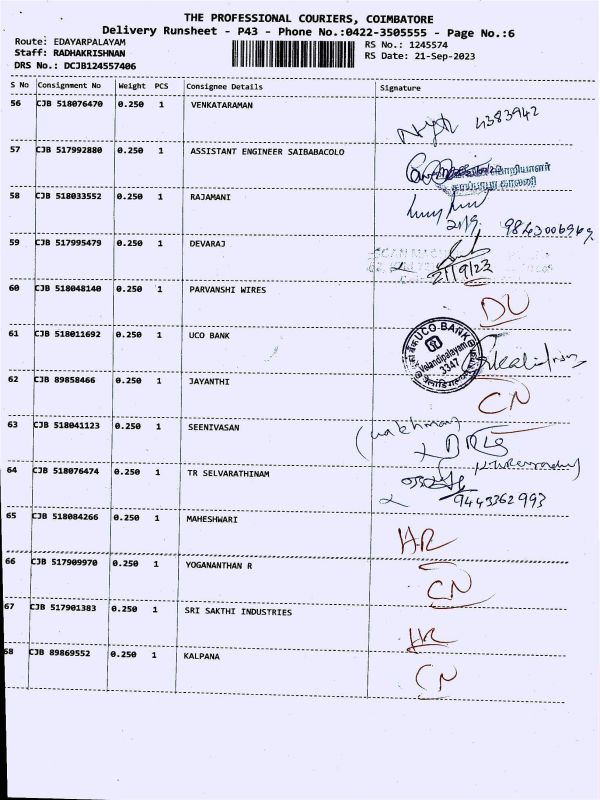 THE PROFESSIONAL COURIERS, COIMBATORE
Delivery Runsheet - P43 - Phone No.:0422-3505555 - Page No.:6
Route: EDAYARPALAYAM
Staff: RADHAKRISHNAN
DRS No.: DCJB124557406
RS No.: 1245574
RS Date: 21-Sep-2023
S No Consignment No Weight PCS Consignee Details Signature
56 CJB 518076470 0.250 1 VENKATARAMAN
4383942
57 CJB 517992880 0.250 1 ASSISTANT ENGINEER SAIBABACOLO
58 CJB 518033552 0.250 1 RAJAMANI
21/9. 9843006969
59 CJB 517995479 0.250 1 DEVARAJ
21/9/23
60 CJB 518048140 0.250 1 PARVANSHI WIRES
DU
61 CJB 518011692 0.250 1 UCO BANK
UCO BANK
Velandipalayam
3347
62 CJB 89858466 0.250 1 JAYANTHI
CN
63 CJB 518041123 0.250 1 SEENIVASAN
64 CJB 518076474 0.250 1 TR SELVARATHINAM
9443362993
65 CJB 518084266 0.250 1 MAHESHWARI
HR
66 CJB 517909970 0.250 1 YOGANANTHAN R
CN
67 CJB 517901383 0.250 1 SRI SAKTHI INDUSTRIES
HR
68 CJB 89869552 0.250 1 KALPANA
CN